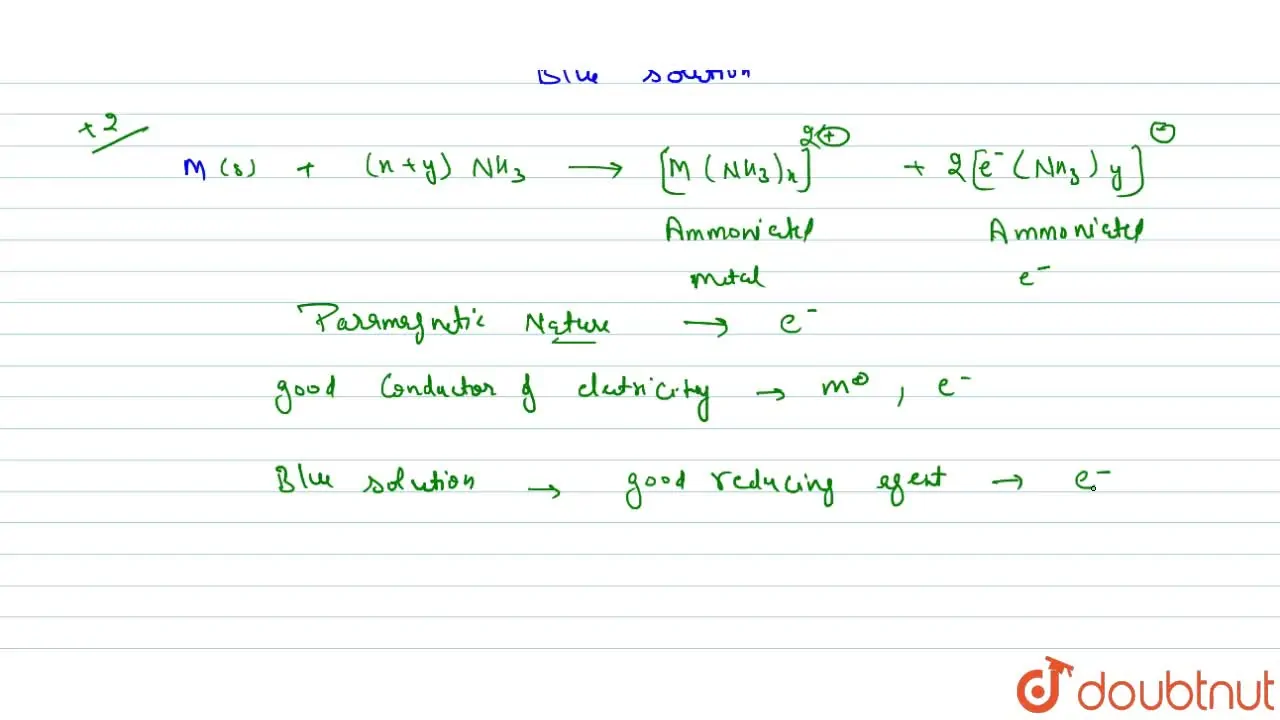 Blue solution
+2
M(s) + (x+y) NH3 → [M(NH3)x]2+ + 2[e-(NH3)y]-
Ammoniated Ammoniated
metal e-
Paramagnetic Nature → e-
good Conductor of eletricity → m+, e-
Blue solution → good reducing agent → e-
doubtnut